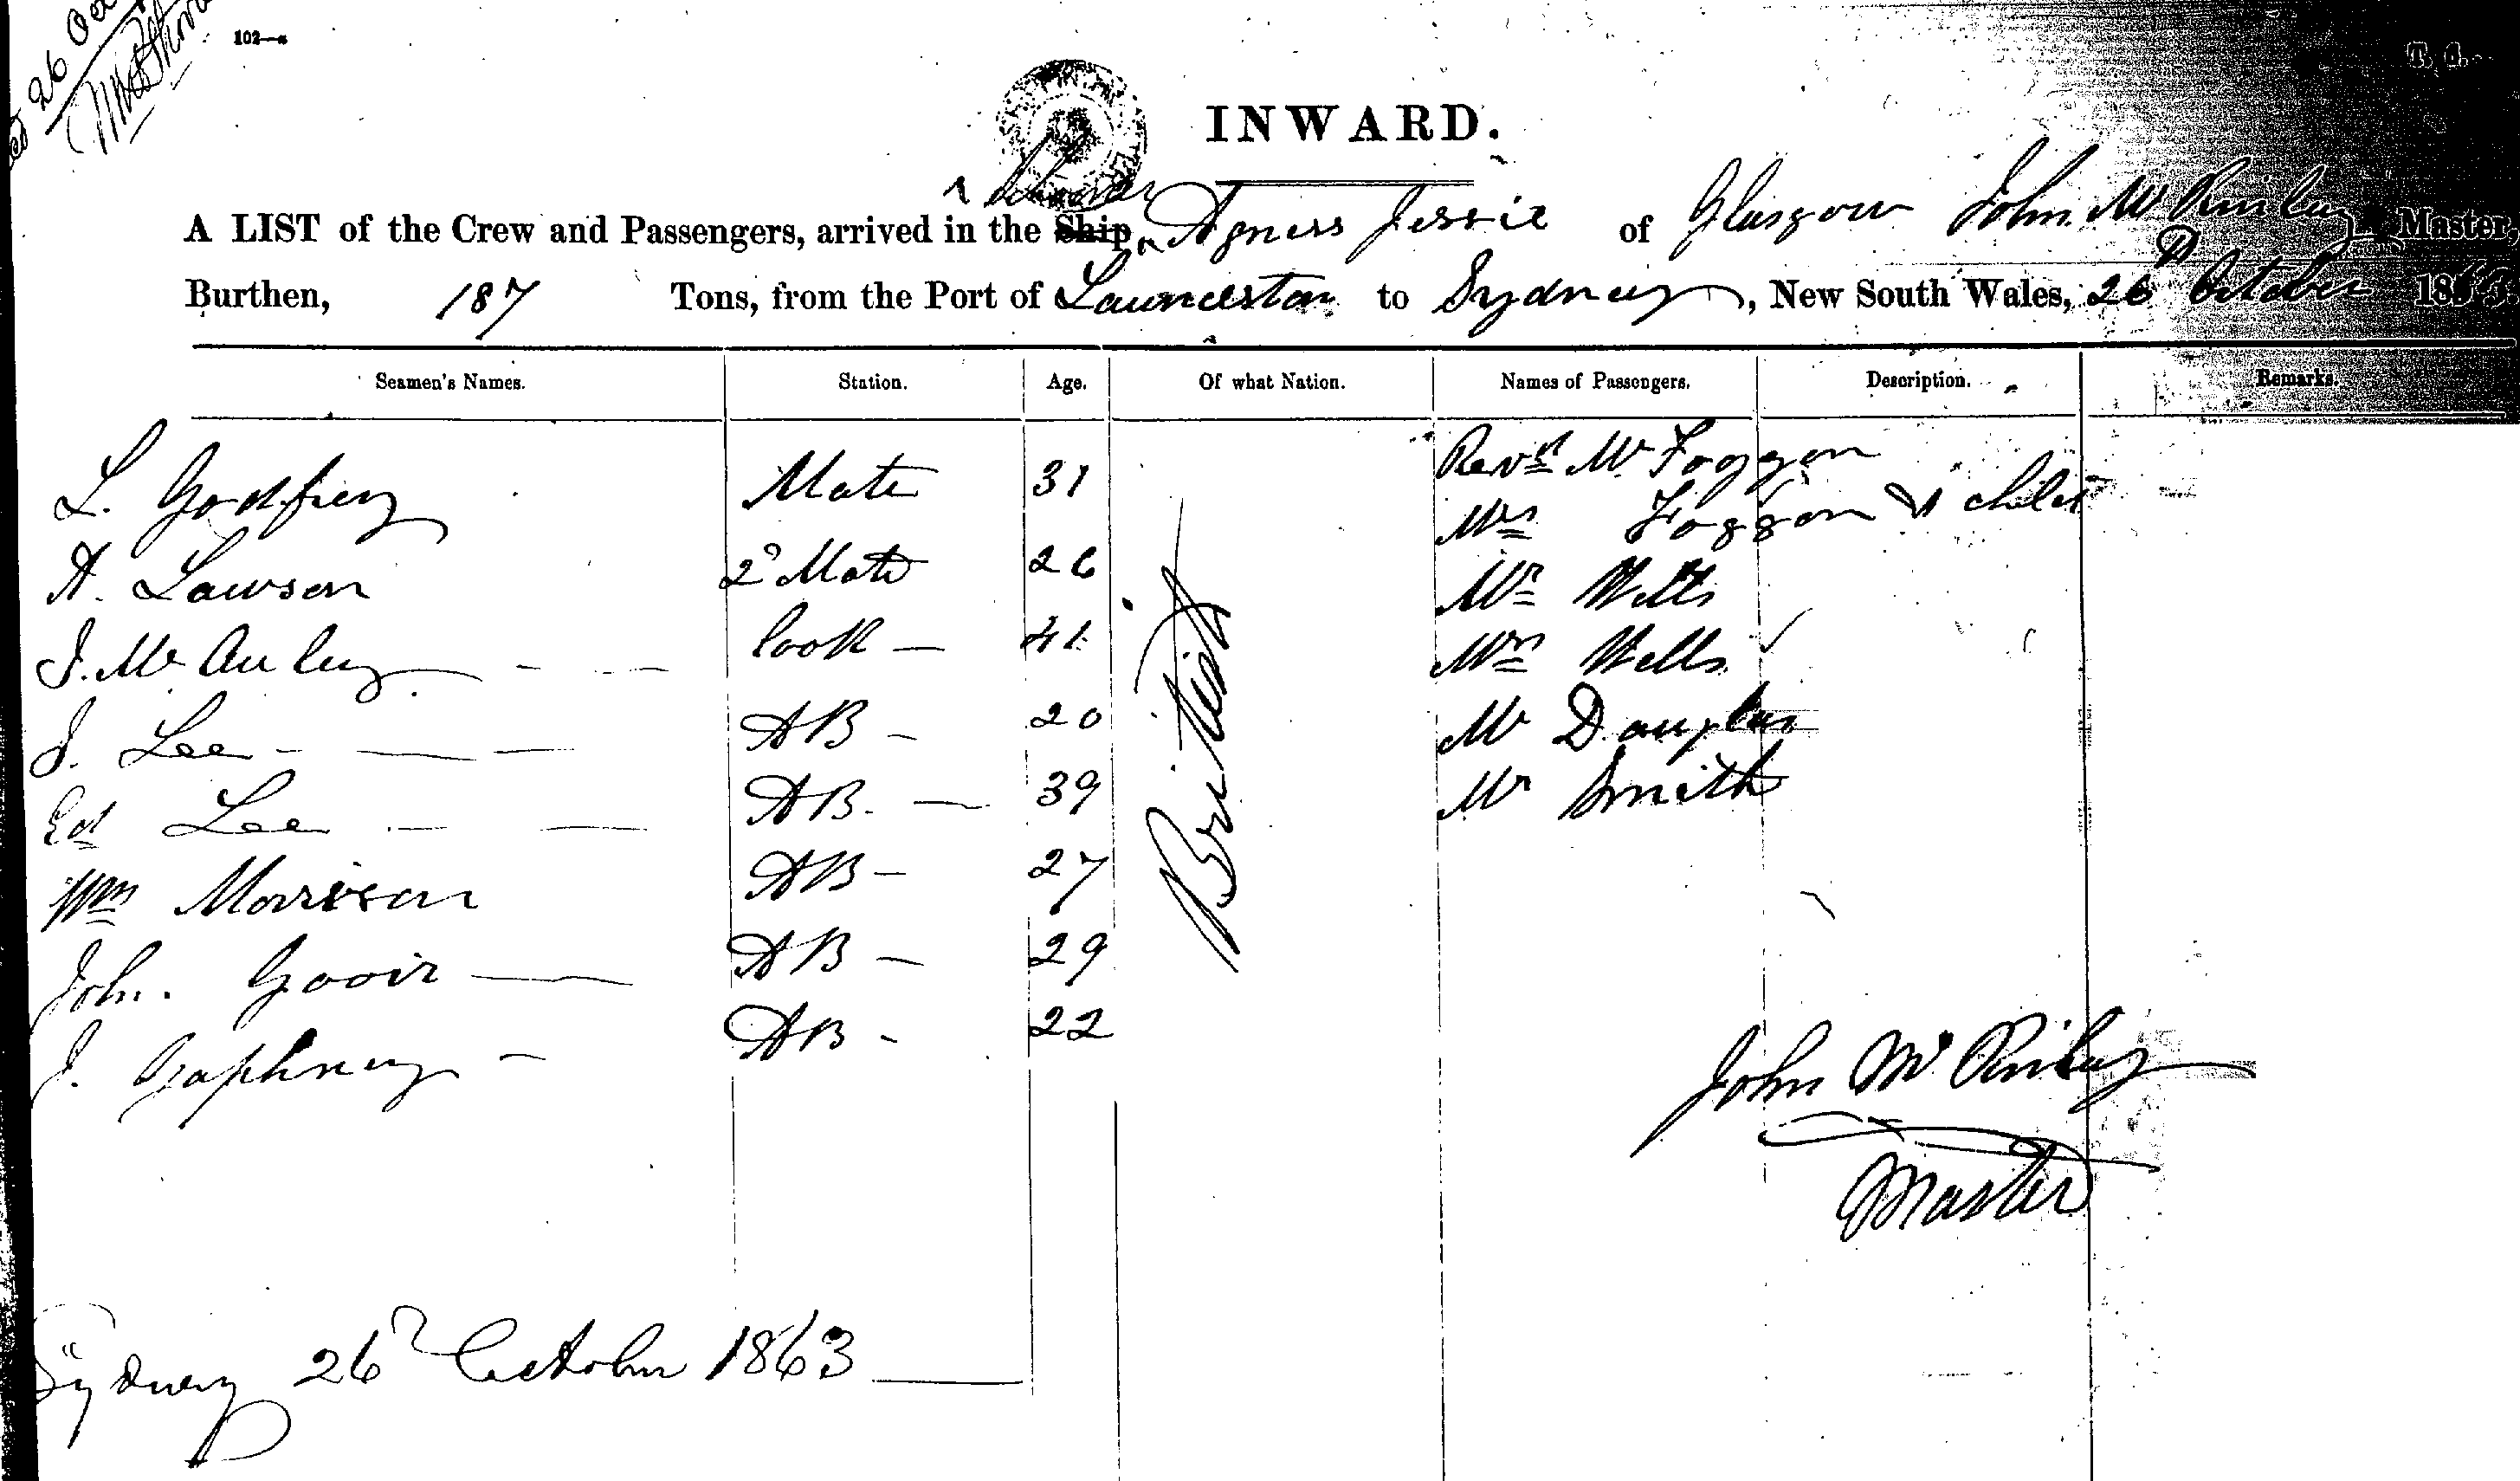 26 Oct
102—a
T. 1.
INWARD.
Schooner
A LIST of the Crew and Passengers, arrived in the Ship Agness Jessie of Glasgow John McKinley Master,
Burthen, 187 Tons, from the Port of Launceston to Sydney, New South Wales, 26th October 1863.
Seamen's Names. Station. Age. Of what Nation. Names of Passengers. Description. Remarks.
L. Godfrey Mate 31 Revd Mr Foggon
Mrs Foggon & child
A. Lawson 2d Mate 26 Mr Wells
J. McAuley Cook — 41 Mrs Wells
J. Lee AB — 20 Mr Douglas
Ed Lee AB. — 39 Mr Smith
British
Wm Morrison AB — 27
John. Gooir AB — 29
J. Gaphney AB - 22
John McKinley
Master
Sydney 26th October 1863